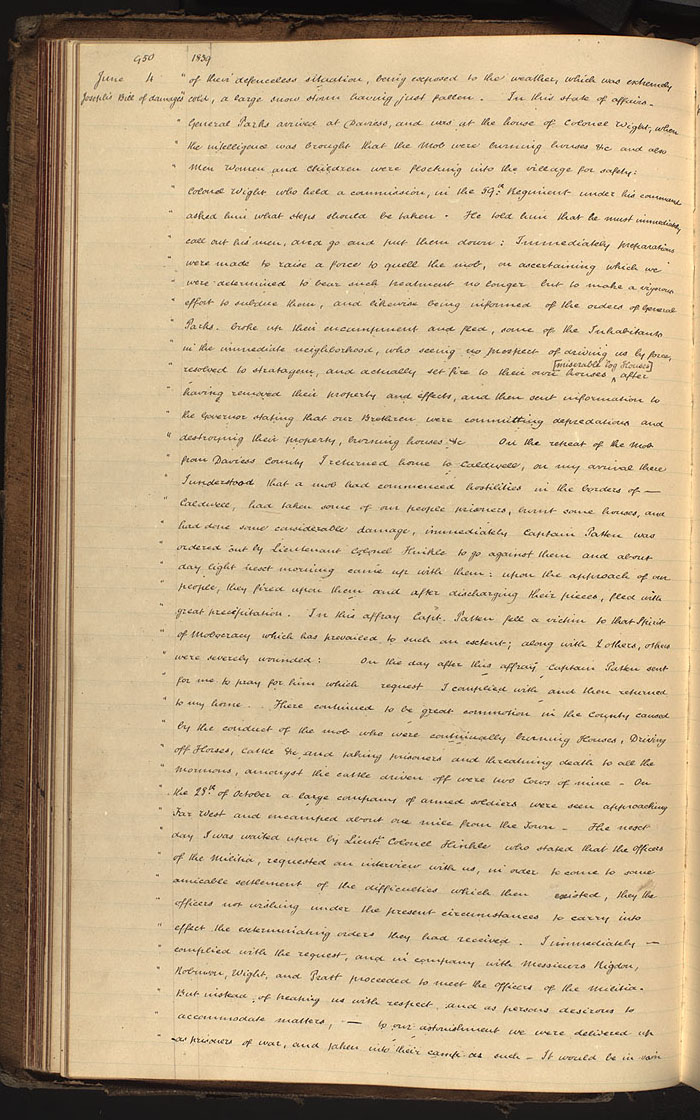 950 1839
June 4 " of their defenceless situation, being exposed to the weather, which was extremely
Joseph's Bill of damages " cold, a large snow storm having just fallen. In this state of affairs.
" General Parks arrived at Daviess, and was at the house of Colonel Wight, when
" the intelligence was brought that the Mob were burning houses &c and also
" Men Women and Children were flocking into the village for safety:
" Colonel Wight who held a commission, in the 59th Regiment under his command
" asked him what steps should be taken. He told him that he must immediately
" call out his men, and go and put them down: Immediately preparations
" were made to raise a force to quell the mob, on ascertaining which we
" were determined to bear such treatment no longer but to make a vigorous
" effort to subdue them, and likewise being informed of the orders of General
" Parks. broke up their encampment and fled, some of the Inhabitants
" in the immediate neighborhood, who seeing no prospect of driving us by force,
" resolved to stratagem, and actually set fire to their own houses ^ [miserable Log Houses] after
" having removed their property and effects, and then sent information to
" the Governor stating that our Brethren were committing depredations and
" destroying their property, burning houses &c On the retreat of the Mob
" from Daviess County I returned home to Caldwell, on my arrival there
" I understood that a mob had commenced hostilities in the borders of —
" Caldwell, had taken some of our people prisoners, burnt some houses, and
" had done some considerable damage, immediately Captain Patten was
" ordered out by Lieutenant Colonel Hinkle to go against them and about
" day light next morning came up with them: upon the approach of our
" people, they fired upon them and after discharging their pieces, fled with
" great precipitation. In this affray Capt. Patten fell a victim to that Spirit
" of Mobocracy which has prevailed to such an extent; along with 2 others, others
" were severely wounded: On the day after this affray, Captain Patten sent
" for me to pray for him which request I complied with and then returned
" to my home. There continued to be great commotion in the County caused
" by the conduct of the mob who were continually burning Houses, Driving
" off Horses, Cattle &c and taking prisoners and threatning death to all the
" Mormons, amongst the cattle driven off were two Cows of mine - On
" the 28th of October a large company of armed soldiers were seen approaching
" Far West and encamped about one mile from the Town - The next
" day I was waited upon by Lieut. Colonel Hinkle who stated that the officers
" of the Militia, requested an interview with us, in order to come to some
" amicable settlement of the difficulties which then existed, they the
" officers not wishing under the present circumstances to carry into
" effect the exterminating orders they had received. I immediately —
" complied with the request, and in company with Messieurs Rigdon,
" Robinson, Wight, and Pratt proceeded to meet the officers of the Militia.
" But instead of treating us with respect, and as persons desirous to
" accommodate matters, — to our astonishment we were delivered up
" as prisoners of war, and taken into their camp as such - It would be in vain